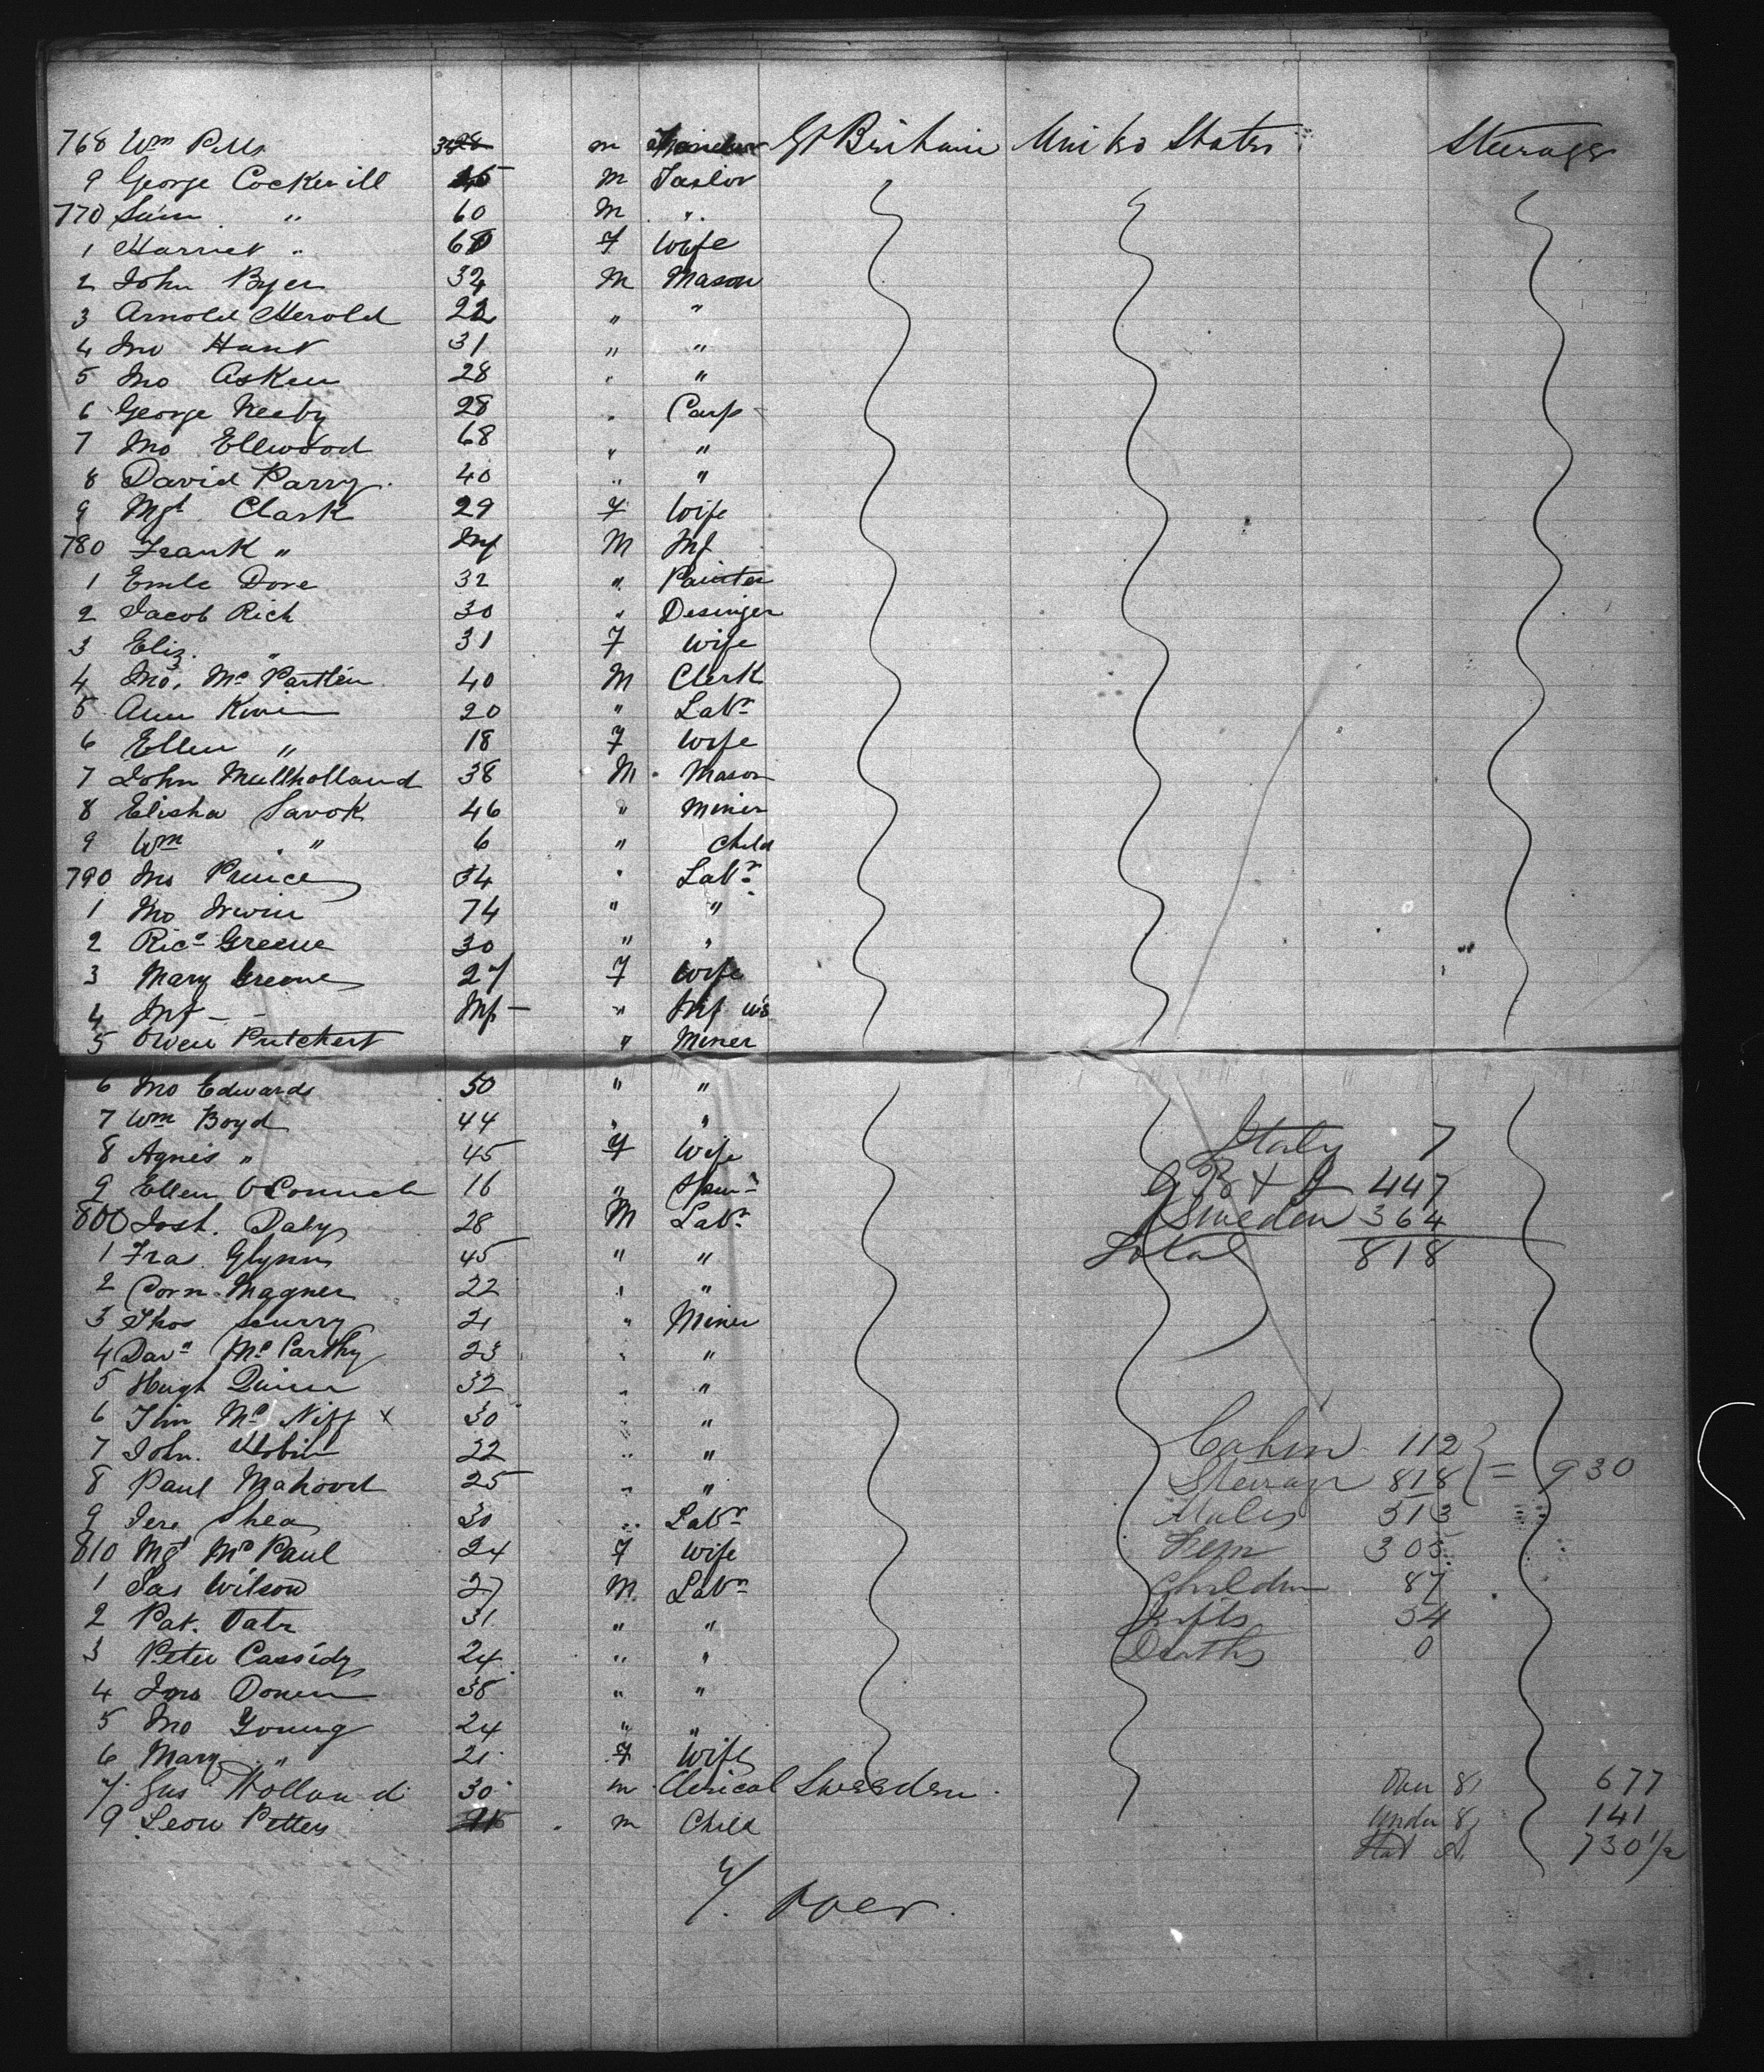 768 Wm Pells m Gt Britain United States Steerage
9 George Cockerill m Tailor
770 " 60 m "
1 Harriet " 60 F Wife
2 John Byer 32 M Mason
3 Arnold Herold 22 " "
4 Jno Hunt 31 " "
5 Jno Asken 28 " "
6 George Neeby 28 " Carp
7 Jno Ellwood 68 " "
8 David Parry 40 " "
9 Mgt Clark 29 F Wife
780 Frank " Inf M Inf
1 Emile Dore 32 " Painter
2 Jacob Rich 30 " Desinger
3 Eliz. " 31 F Wife
4 Jno. Mc Partlin 40 M Clerk
5 20 " Labr
6 Ellen " 18 F Wife
7 John Mullholland 38 M Mason
8 Elisha Savok 46 " Miner
9 Wm " 6 " Child
790 Jno Prince 34 " Labr
1 Jno Irwin 74 " "
2 Ricd Greene 30 " "
3 Mary Greene 27 F Wife
4 Inf - - Inf - " Inf
5 Owen Pritchert " Miner
6 Jno Edwards 50 " "
7 Wm Boyd 44 " "
8 Agnes " 45 F Wife
9 Ellen O'Connell 16 "
800 Josh. Daly 28 M Labr
1 Fras. Glynn 45 " "
2 Corn. Magner 22 " "
3 Thos Scurry 21 " Miner
4 Mc Carthy 23 " "
5 Hugh Quinn 32 " "
6 Tim Mc Niff x 30 " "
7 John. Hobin 22 " "
8 Paul Mahood 25 " "
9 Jere Shea 30 " Labr
810 Mgt Mc Paul 24 F Wife
1 Jas Wilson 27 M Labr
2 Pat. Oats 31 " "
3 Peter Cassidy 24 " "
4 Jno 38 " "
5 Jno Young 24 " "
6 Mary " 21 F Wife
7 Gus Holland 30 m Clerical Sweeden
9 Leon Petters m Child
Italy 7
G B & I 447
Sweden 364
Total 818
Cabin 112
Steerage 818 } = 930
Males 513
Fem 305
Children 87
Infts 34
Deaths 0
Over 8 677
Under 8 141
730 1/2
over.